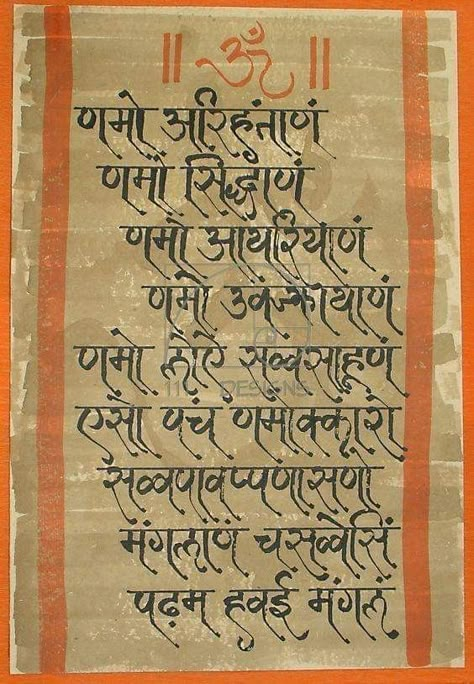 ॥ ॐ ॥
णमो अरिहंताणं
णमो सिद्धाणं
णमो आयरियाणं
णमो उवज्झायाणं
णमो लोए सव्वसाहूणं
11 DESIGNS
एसो पंच णमोक्कारो
सव्वपावप्पणासणो
मंगलाणं चसव्वेसिं
पढम हवई मंगलं